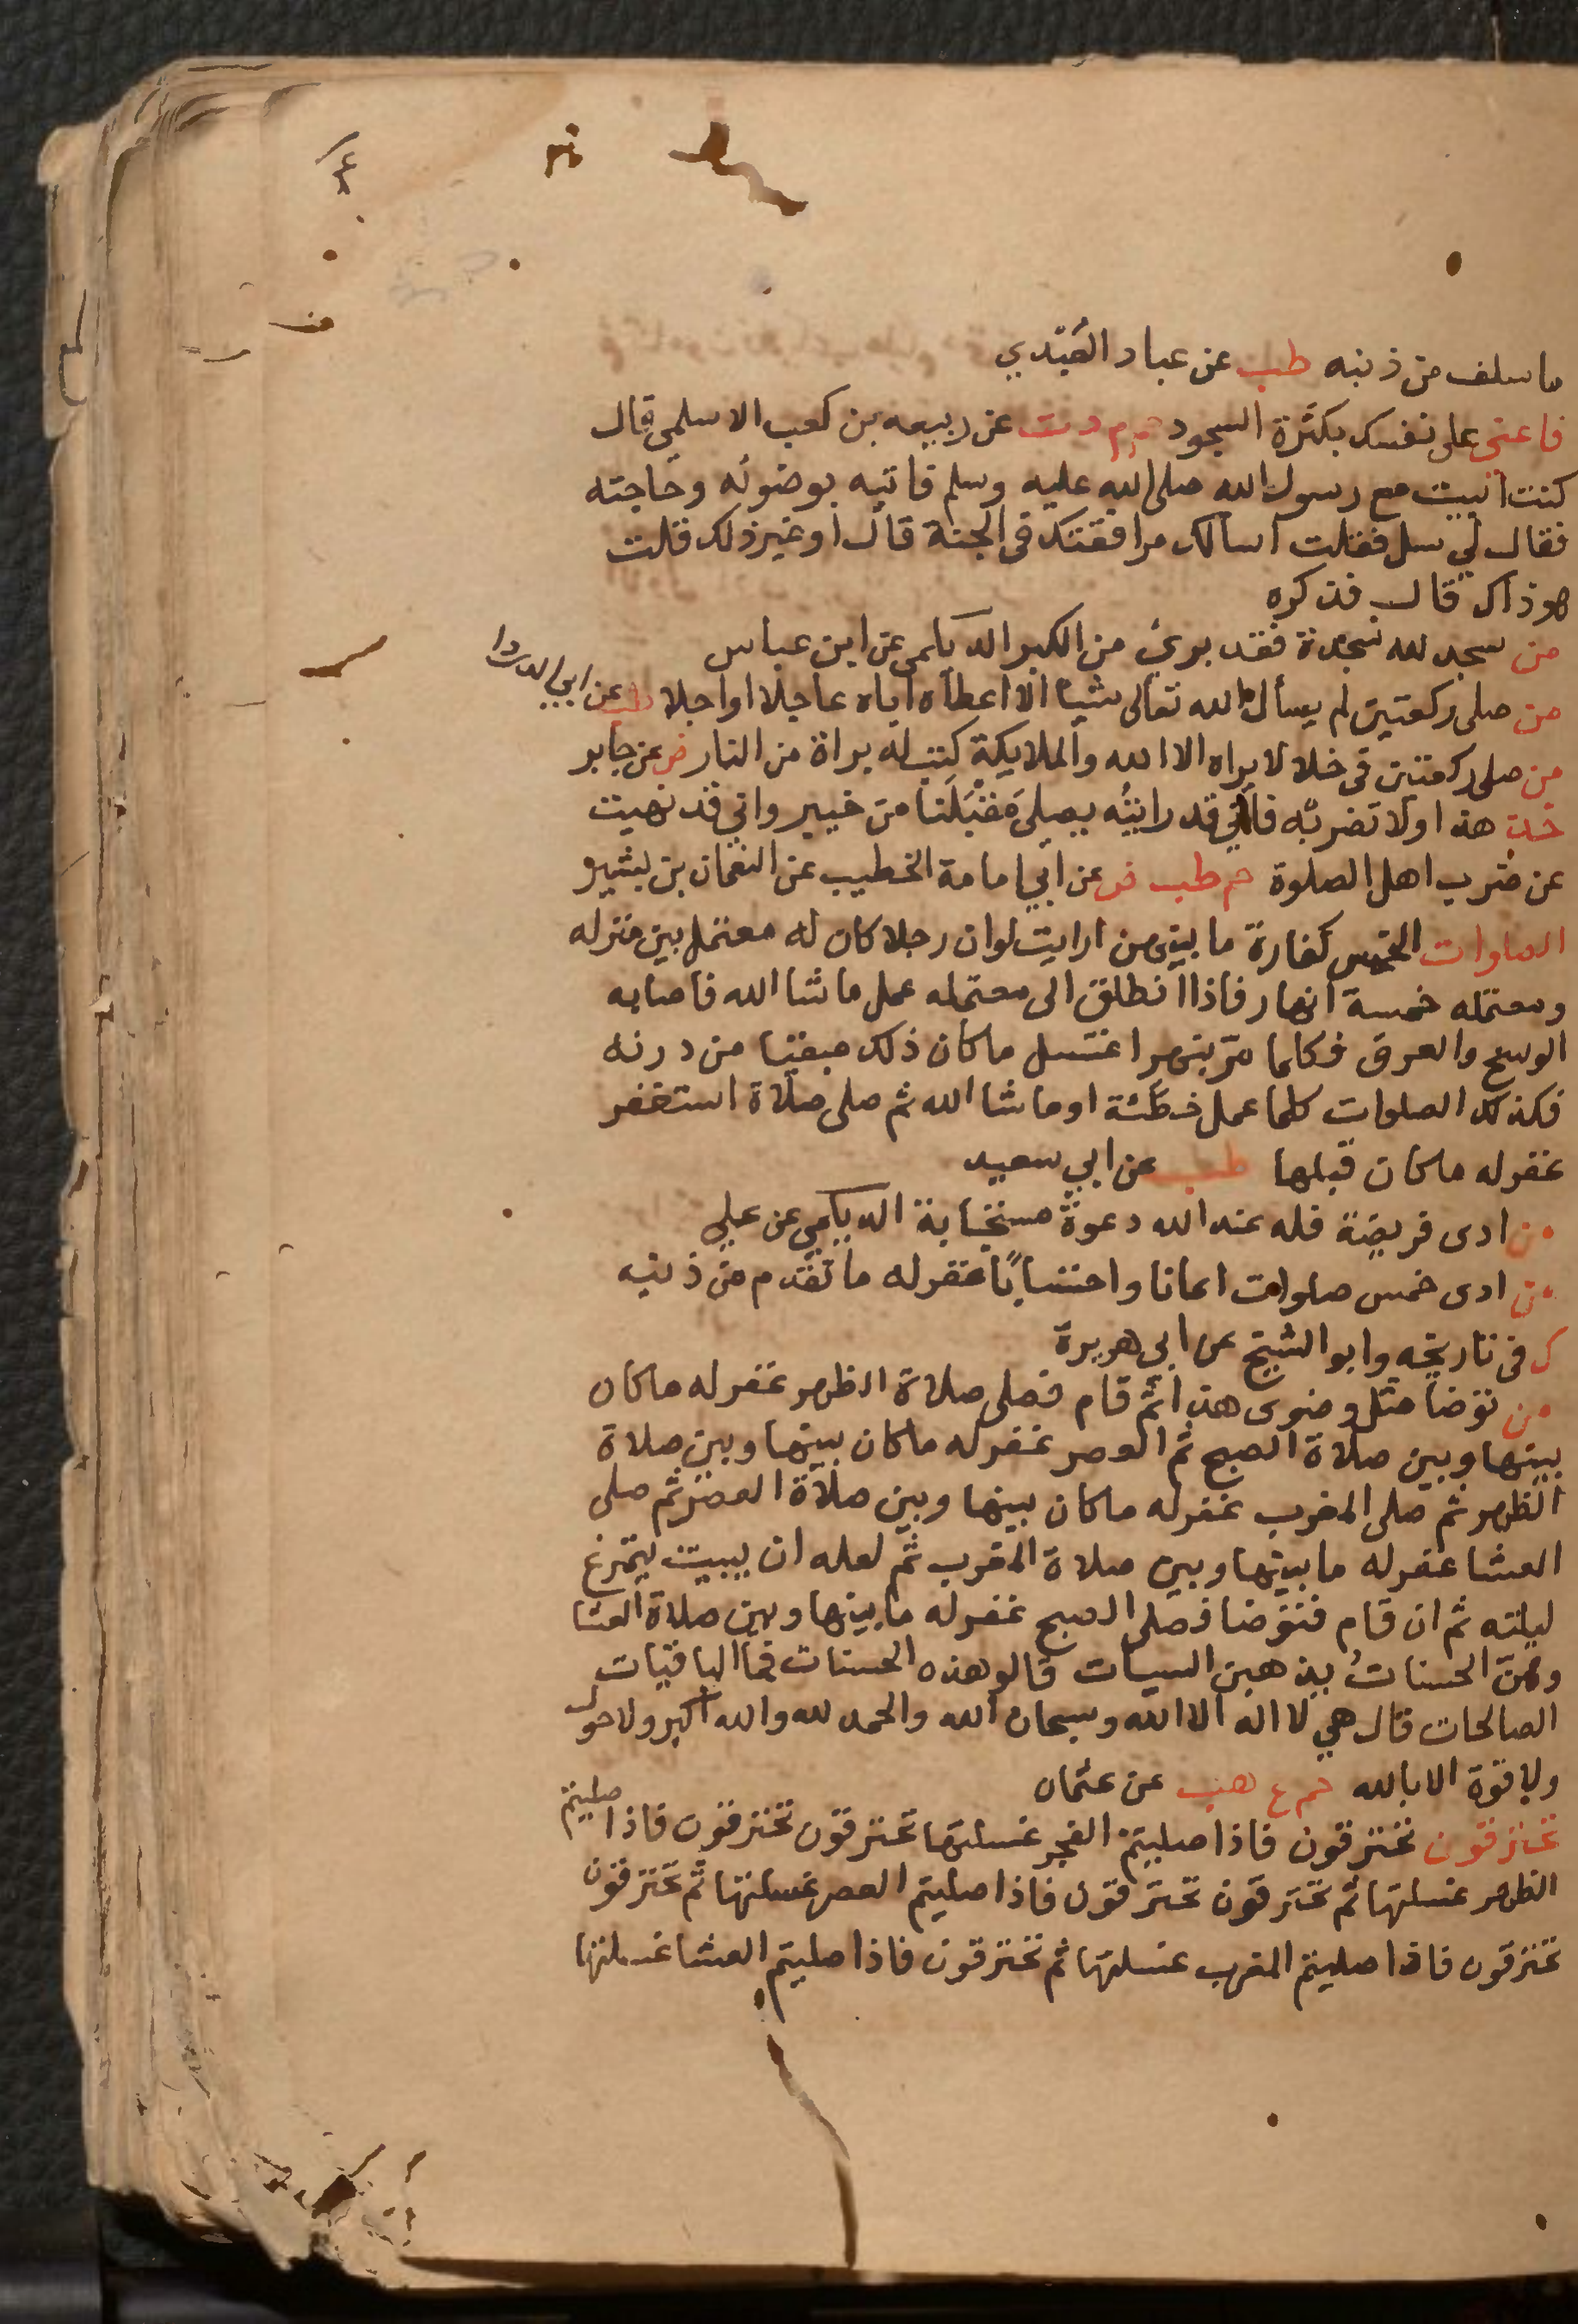 ما سلف من ذنبه طب عن عباد العَبْدي
فاعنى على نفسك بكثرة السجود م د ت عن ربيعه بن كعب الاسلمى قال
كنت ابيت مع رسول الله صلى الله عليه وسلم فاتيه بوضوئه وحاجته
فقال لي سل فقلت اسالك مرافقتك فى الجنة قال اوغير ذلك قلت
هو ذاك قال فذكره
من سجد لله سجدة فقد برئ من الكبر الديلمى عن ابن عباس
من صلى ركعتين لم يسأل الله تعالى شيا الا اعطاه اياه عاجلا او اجلا طب عن ابي الدردا
من صلى ركعتين فى خلا لا يراه الا الله والملايكة كتب له براة من النار ض عن جابر
خذ هذا ولا تضربه فانى قد رايته يصلى مَقْبَلَنا من خيبر وانى قد نهيت
عن ضرب اهل الصلوة حم طب ض عن ابي امامة الخطيب عن النعمان بن بشير
الصلوات الخمس كفارة ما بينهن ارايت لوان رجلا كان له معتمل بين منزله
ومعتمله خمسة انهار فاذا انطلق الى معتمله عمل ما شا الله فاصابه
الوسخ والعرق فكلما مرّ بنهر اغتسل ما كان ذلك مبقيا من درنه
فكذلك الصلوات كلما عمل خطئة او ما شا الله ثم صلى صلاة استغفر
غفر له ما كان قبلها طب عن ابي سعيد
من ادى فريضة فله عند الله دعوة مستجابة الديلمي عن علي
من ادى خمس صلوات ايمانا واحتسابًا غفر له ما تقدم من ذنبه
ك فى تاريخه وابو الشيخ عن ابى هريرة
من توضا مثل وضوى هذا ثم قام فصلى صلاة الظهر غفر له ما كان
بينها وبين صلاة الصبح ثم العصر غفر له ما كان بينها وبين صلاة
الظهر ثم صلى المغرب غفر له ما كان بينها وبين صلاة العصر ثم صلى
العشا غفر له ما بينها وبين صلاة المغرب ثم لعله ان يبيت يتمرغ
ليلته ثم ان قام فتوضا فصلى الصبح غفر له ما بينها وبين صلاة العشا
وهنّ الحسناتُ يذهبن السيات قالو هذه الحسنات فما الباقيات
الصالحات قال هي لا اله الا الله وسبحان الله والحمد لله والله اكبر ولا حول
ولا قوة الا بالله حم ع هب عن عثمان
تحترقون تحترقون فاذا صليتم الفجر غسلتها تحترقون تحترقون فاذا صليتم
الظهر غسلتها ثم تحترقون تحترقون فاذا صليتم العصر غسلتها ثم تحترقون
تحترقون فاذا صليتم المغرب غسلتها ثم تحترقون فاذا صليتم العشا غسلتها